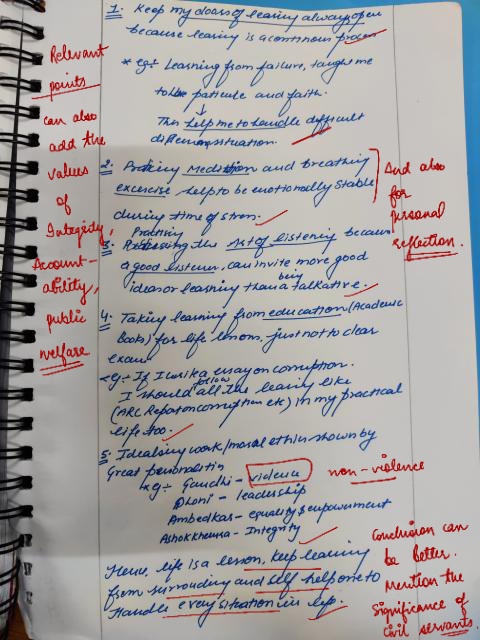 1. Keep my doors of learing always open
because learing is a continous process
* eg:- Learning from failure, taught me
to be paticule and faith.
↓
This help me to handle difficult
different situation.
2. Praticing Meditation and breathing
excercise help to be emotionally stable
during time of stress.
Practising
3. the art of listening because
a good listener, can invite more good
being
ideas or learning than a talkative.
4. Taking learning from education (Academic
Books) for life lessons, just not to clear
exam
eg:- If I write essay on corruption.
follow
I should all the learing like
(ARC Report on corruption etc) in my practical
life too.
5. Idealising work/moral ethics shown by
Great personalities
eg:- Gandhi - violence
Dhoni - leadership
Ambedkar - equality & empowerment
Ashok Khemka - Integrity
Hence, life is a lesson, keep learning
from surrouding and self help one to
Handle every situation in life.
Relevant
points
can also
add the
values
of
Integrity,
Account-
ability,
public
welfare
And also
for
personal
reflection.
non-violence
Conclusion can
be better.
Mention the
significance of
civil servants.